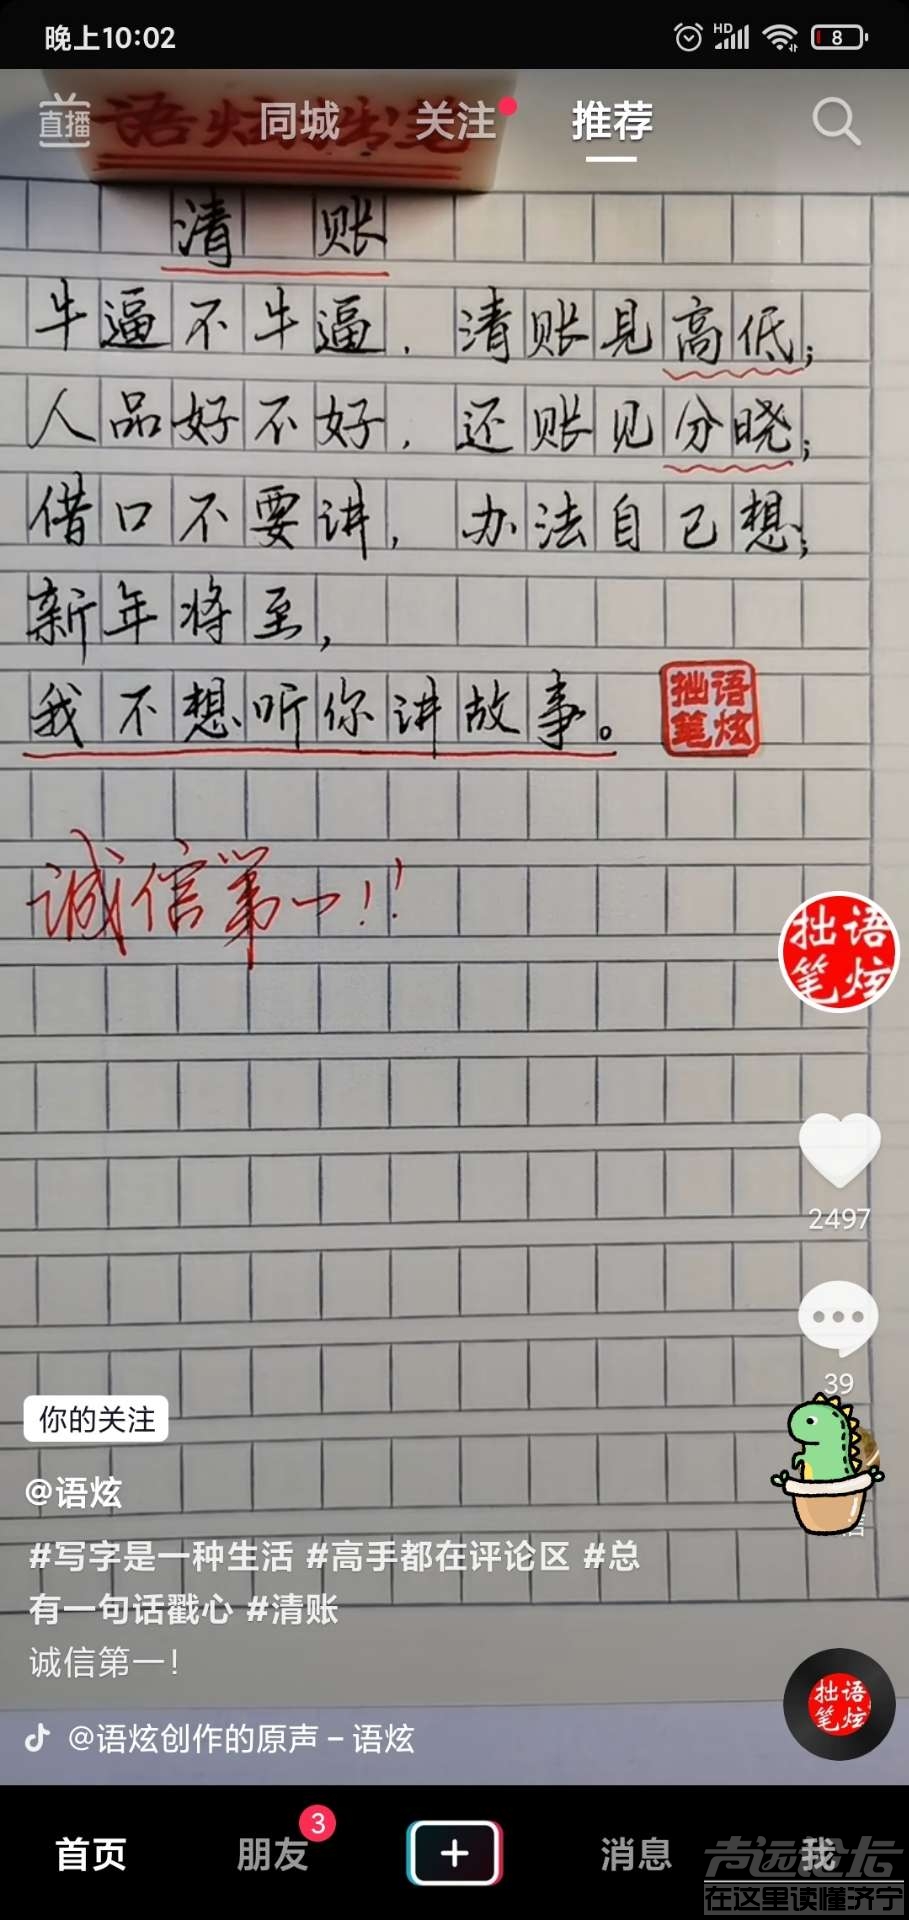 晚上10:02
HD
8
直播
同城
关注
推荐
清账
牛逼不牛逼，清账见高低；
人品好不好，还账见分晓；
借口不要讲，办法自己想；
新年将至，
我不想听你讲故事。
语炫
拙笔
诚信第一！！
语炫
拙笔
2497
39
你的关注
@语炫
#写字是一种生活 #高手都在评论区 #总
有一句话戳心 #清账
诚信第一！
语炫
拙笔
@语炫创作的原声 – 语炫
首页
朋友
3
消息
我
声远论坛
在这里读懂济宁